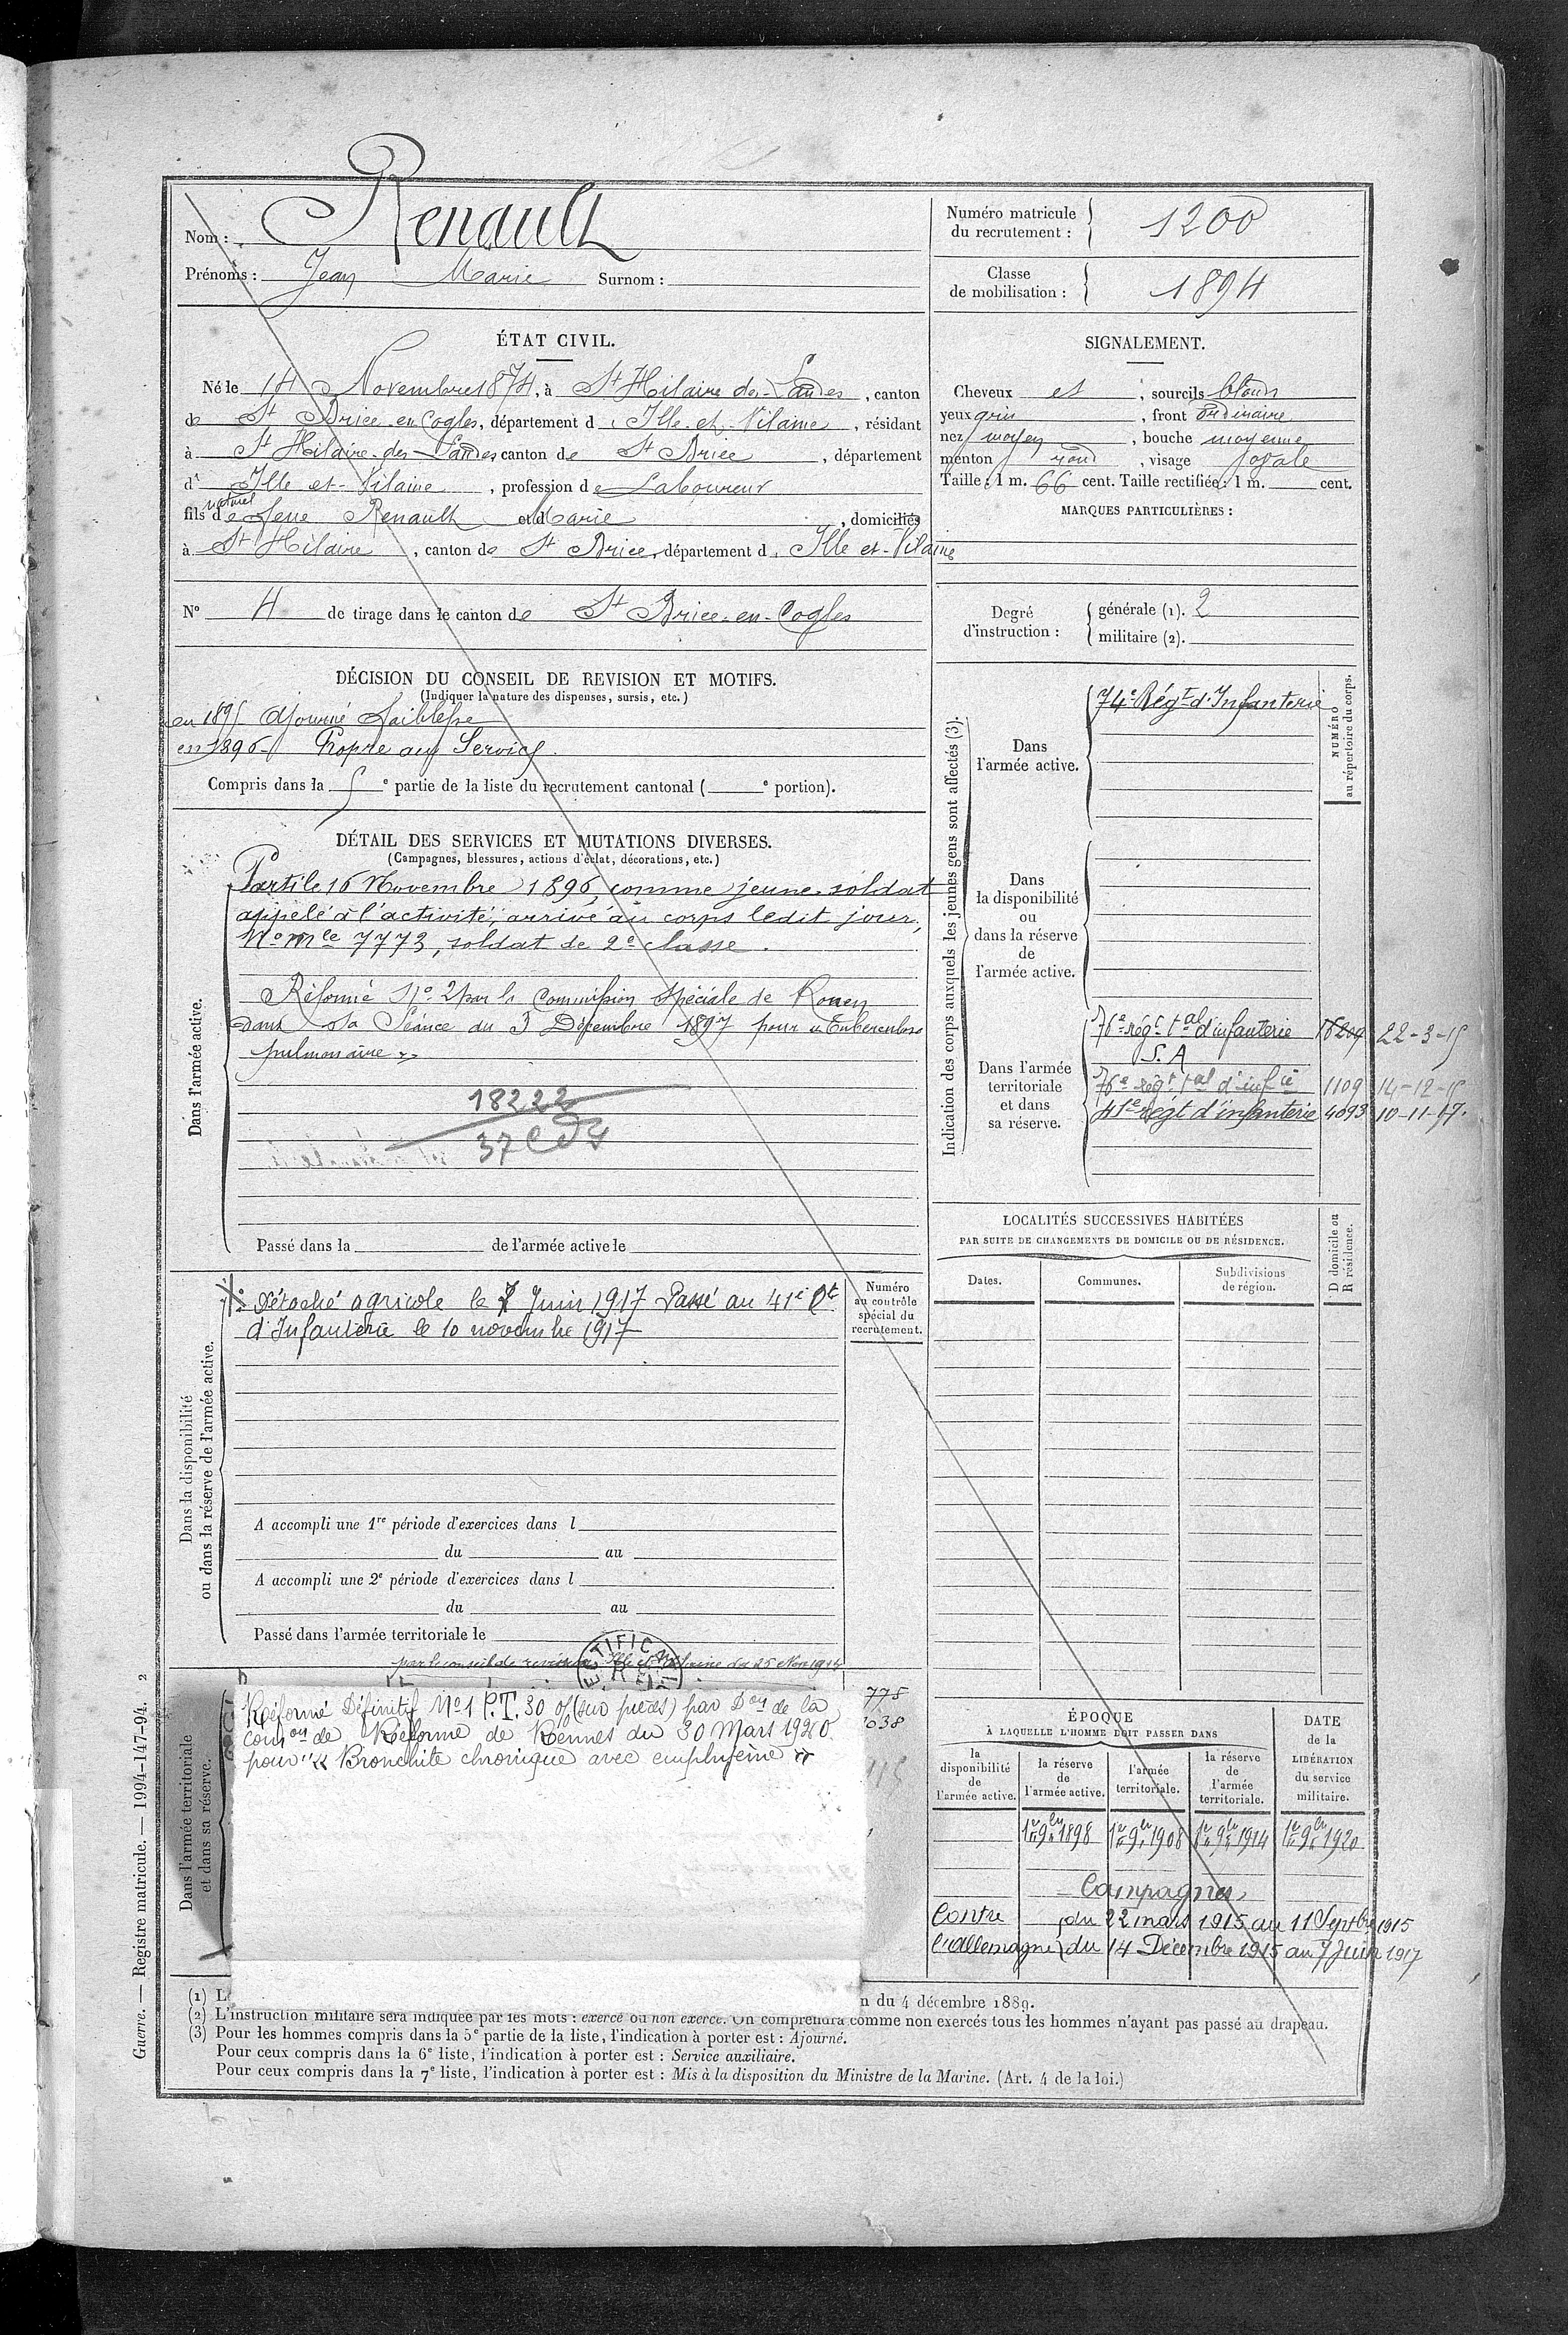 Nom : Renault
Prénoms : Jean Marie Surnom :
Numéro matricule du recrutement : 1200
Classe de mobilisation : 1894
ÉTAT CIVIL.
Né le 14 Novembre 1874, à St Hilaire des Landes, canton
de St Brice-en-Cogles, département d'Ille-et-Vilaine, résidant
à St Hilaire-des-Landes canton de St Brice, département
d'Ille-et-Vilaine, profession de Laboureur
fils naturel de feue Renault et d Marie, domiciliés
à St Hilaire, canton de St Brice, département d'Ille-et-Vilaine
N° 4 de tirage dans le canton de St Brice-en-Cogles
SIGNALEMENT.
Cheveux et, sourcils blonds
yeux gris, front ordinaire
nez moyen, bouche moyenne
menton rond, visage ovale
Taille : 1 m. 66 cent. Taille rectifiée : 1 m. cent.
MARQUES PARTICULIÈRES :
Degré d'instruction : générale (1). 2
militaire (2).
DÉCISION DU CONSEIL DE REVISION ET MOTIFS.
(Indiquer la nature des dispenses, sursis, etc.)
en 1895 Ajourné faiblesse
en 1896 Propre au Service.
Compris dans la 5e partie de la liste du recrutement cantonal ( e portion).
DÉTAIL DES SERVICES ET MUTATIONS DIVERSES.
(Campagnes, blessures, actions d'éclat, décorations, etc.)
Dans l'armée active.
Parti le 16 Novembre 1896, comme jeune soldat
appelé à l'activité, arrivé au corps ledit jour,
No mle 7773, soldat de 2e classe.
Réformé No 2 par la Commission spéciale de Rouen
dans sa Séance du 3 Décembre 1897 pour "Tuberculose
pulmonaire"
18222
37
Passé dans la de l'armée active le
Indication des corps auxquels les jeunes gens sont affectés (3).
NUMÉRO au répertoire du corps.
Dans l'armée active.
74e Régt d'Infanterie
Dans la disponibilité ou dans la réserve de l'armée active.
Dans l'armée territoriale et dans sa réserve.
76e régt tal d'infanterie 16204 22-3-15
S.A
76e régt tal d'infie 1109 14-12-15
41e régt d'infanterie 4093 10-11-17.
LOCALITÉS SUCCESSIVES HABITÉES
PAR SUITE DE CHANGEMENTS DE DOMICILE OU DE RÉSIDENCE.
Dates. Communes. Subdivisions de région.
D domicile ou R résidence.
Dans la disponibilité ou dans la réserve de l'armée active.
Détaché agricole le 7 Juin 1917 Passé au 41e Rt
d'Infanterie le 10 novembre 1917
Numéro au contrôle spécial du recrutement.
A accompli une 1re période d'exercices dans l
du au
A accompli une 2e période d'exercices dans l
du au
Passé dans l'armée territoriale le
par le conseil de revision Ille et Vilaine du 25 Nov 1914
Dans l'armée territoriale et dans sa réserve.
Réformé Définitif No 1 P.T. 30 % (sur pieds) par Don de la
Comon de Réforme de Rennes du 30 Mars 1920
pour "Bronchite chronique avec emphysème"
778
1038
ÉPOQUE
À LAQUELLE L'HOMME DOIT PASSER DANS
la disponibilité de l'armée active.
la réserve de l'armée active.
l'armée territoriale.
la réserve de l'armée territoriale.
DATE de la LIBÉRATION du service militaire.
1er 9bre 1898 1er 9bre 1908 1er 9bre 1914 1er 9bre 1920
Campagnes
Contre du 22 mars 1915 au 11 Septbre 1915
l'Allemagne du 14 Décembre 1915 au 7 Juin 1917
(1) n du 4 décembre 1889.
(2) L'instruction militaire sera indiquée par les mots : exercé ou non exercé. On comprendra comme non exercés tous les hommes n'ayant pas passé au drapeau.
(3) Pour les hommes compris dans la 5e partie de la liste, l'indication à porter est : Ajourné.
Pour ceux compris dans la 6e liste, l'indication à porter est : Service auxiliaire.
Pour ceux compris dans la 7e liste, l'indication à porter est : Mis à la disposition du Ministre de la Marine. (Art. 4 de la loi.)
Guerre. — Registre matricule. — 1994-147-94. 2